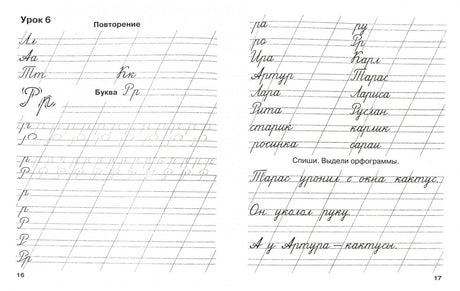 Урок 6
Повторение
Лл
Аа
Тт Кк
Буква Рр
Рр
р
р
р
р
р
Р
Р
Рр
16
ра ру
ро Рр
Ира Карл
Артур Тарас
Лара Лариса
Рита Руслан
старик карлик
росинка сараи
Спиши. Выдели орфограммы.
Тарас уронил с окна кактус.
Он уколол руку.
А у Артура – кактусы.
17